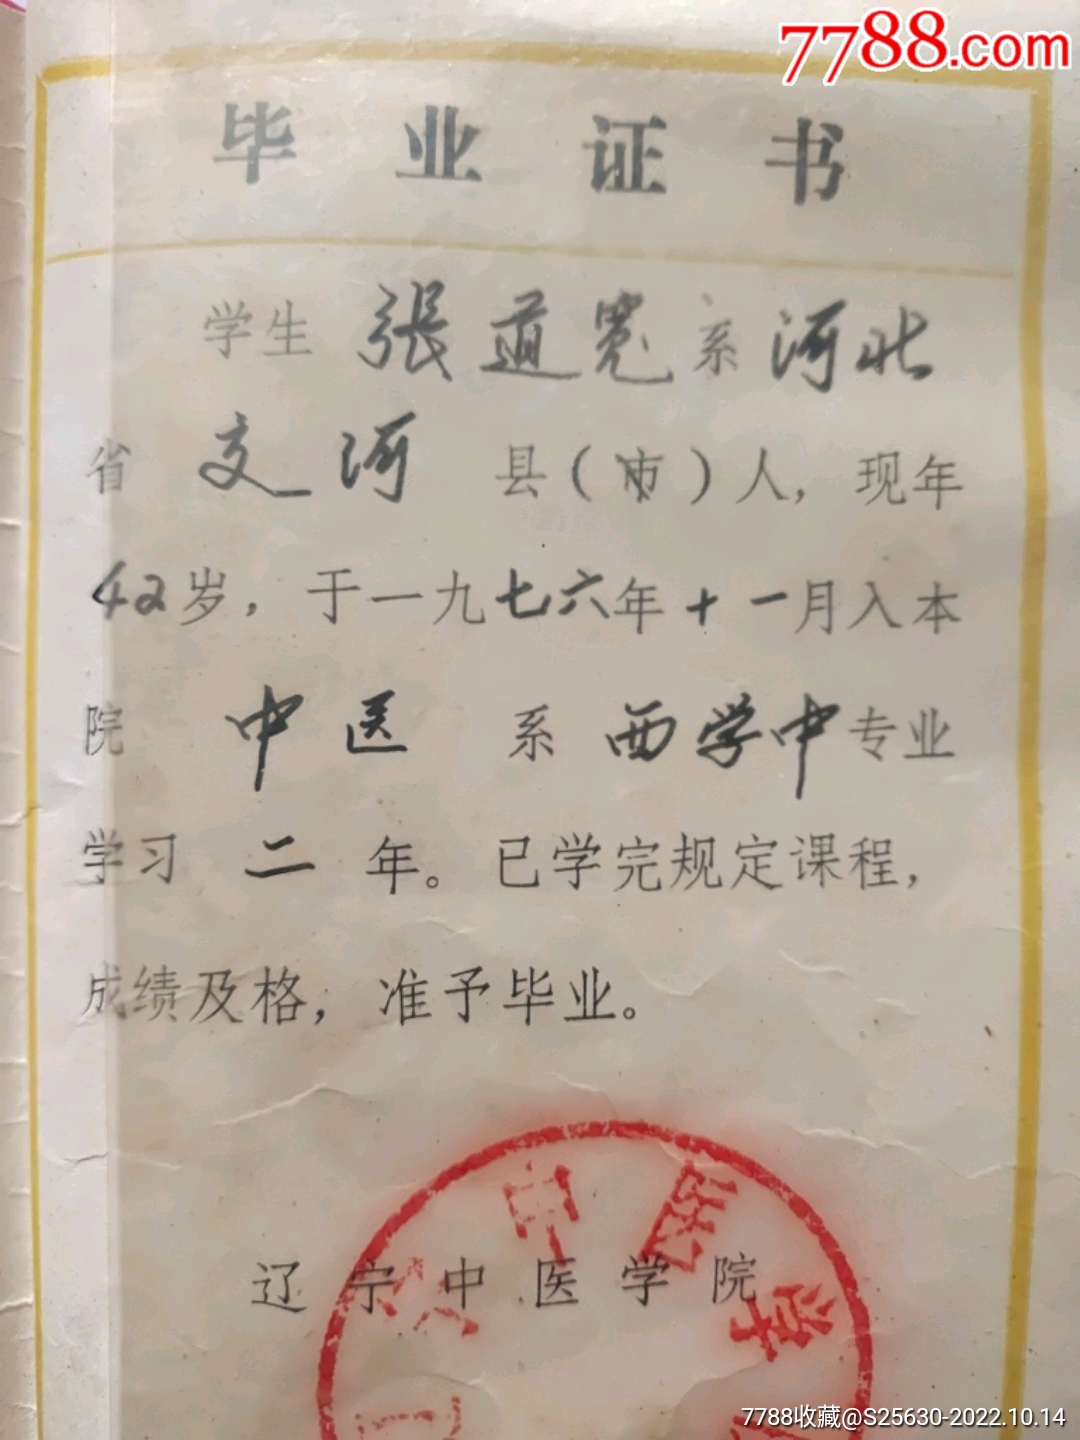 7788.com
毕业证书
学生 張道宽 系 河北
省 交河 县(市)人，现年
42岁，于一九七六年十一月入本
院 中医 系 西学中 专业
学习 二 年。已学完规定课程，
成绩及格，准予毕业。
辽宁中医学院
7788收藏@S25630-2022.10.14